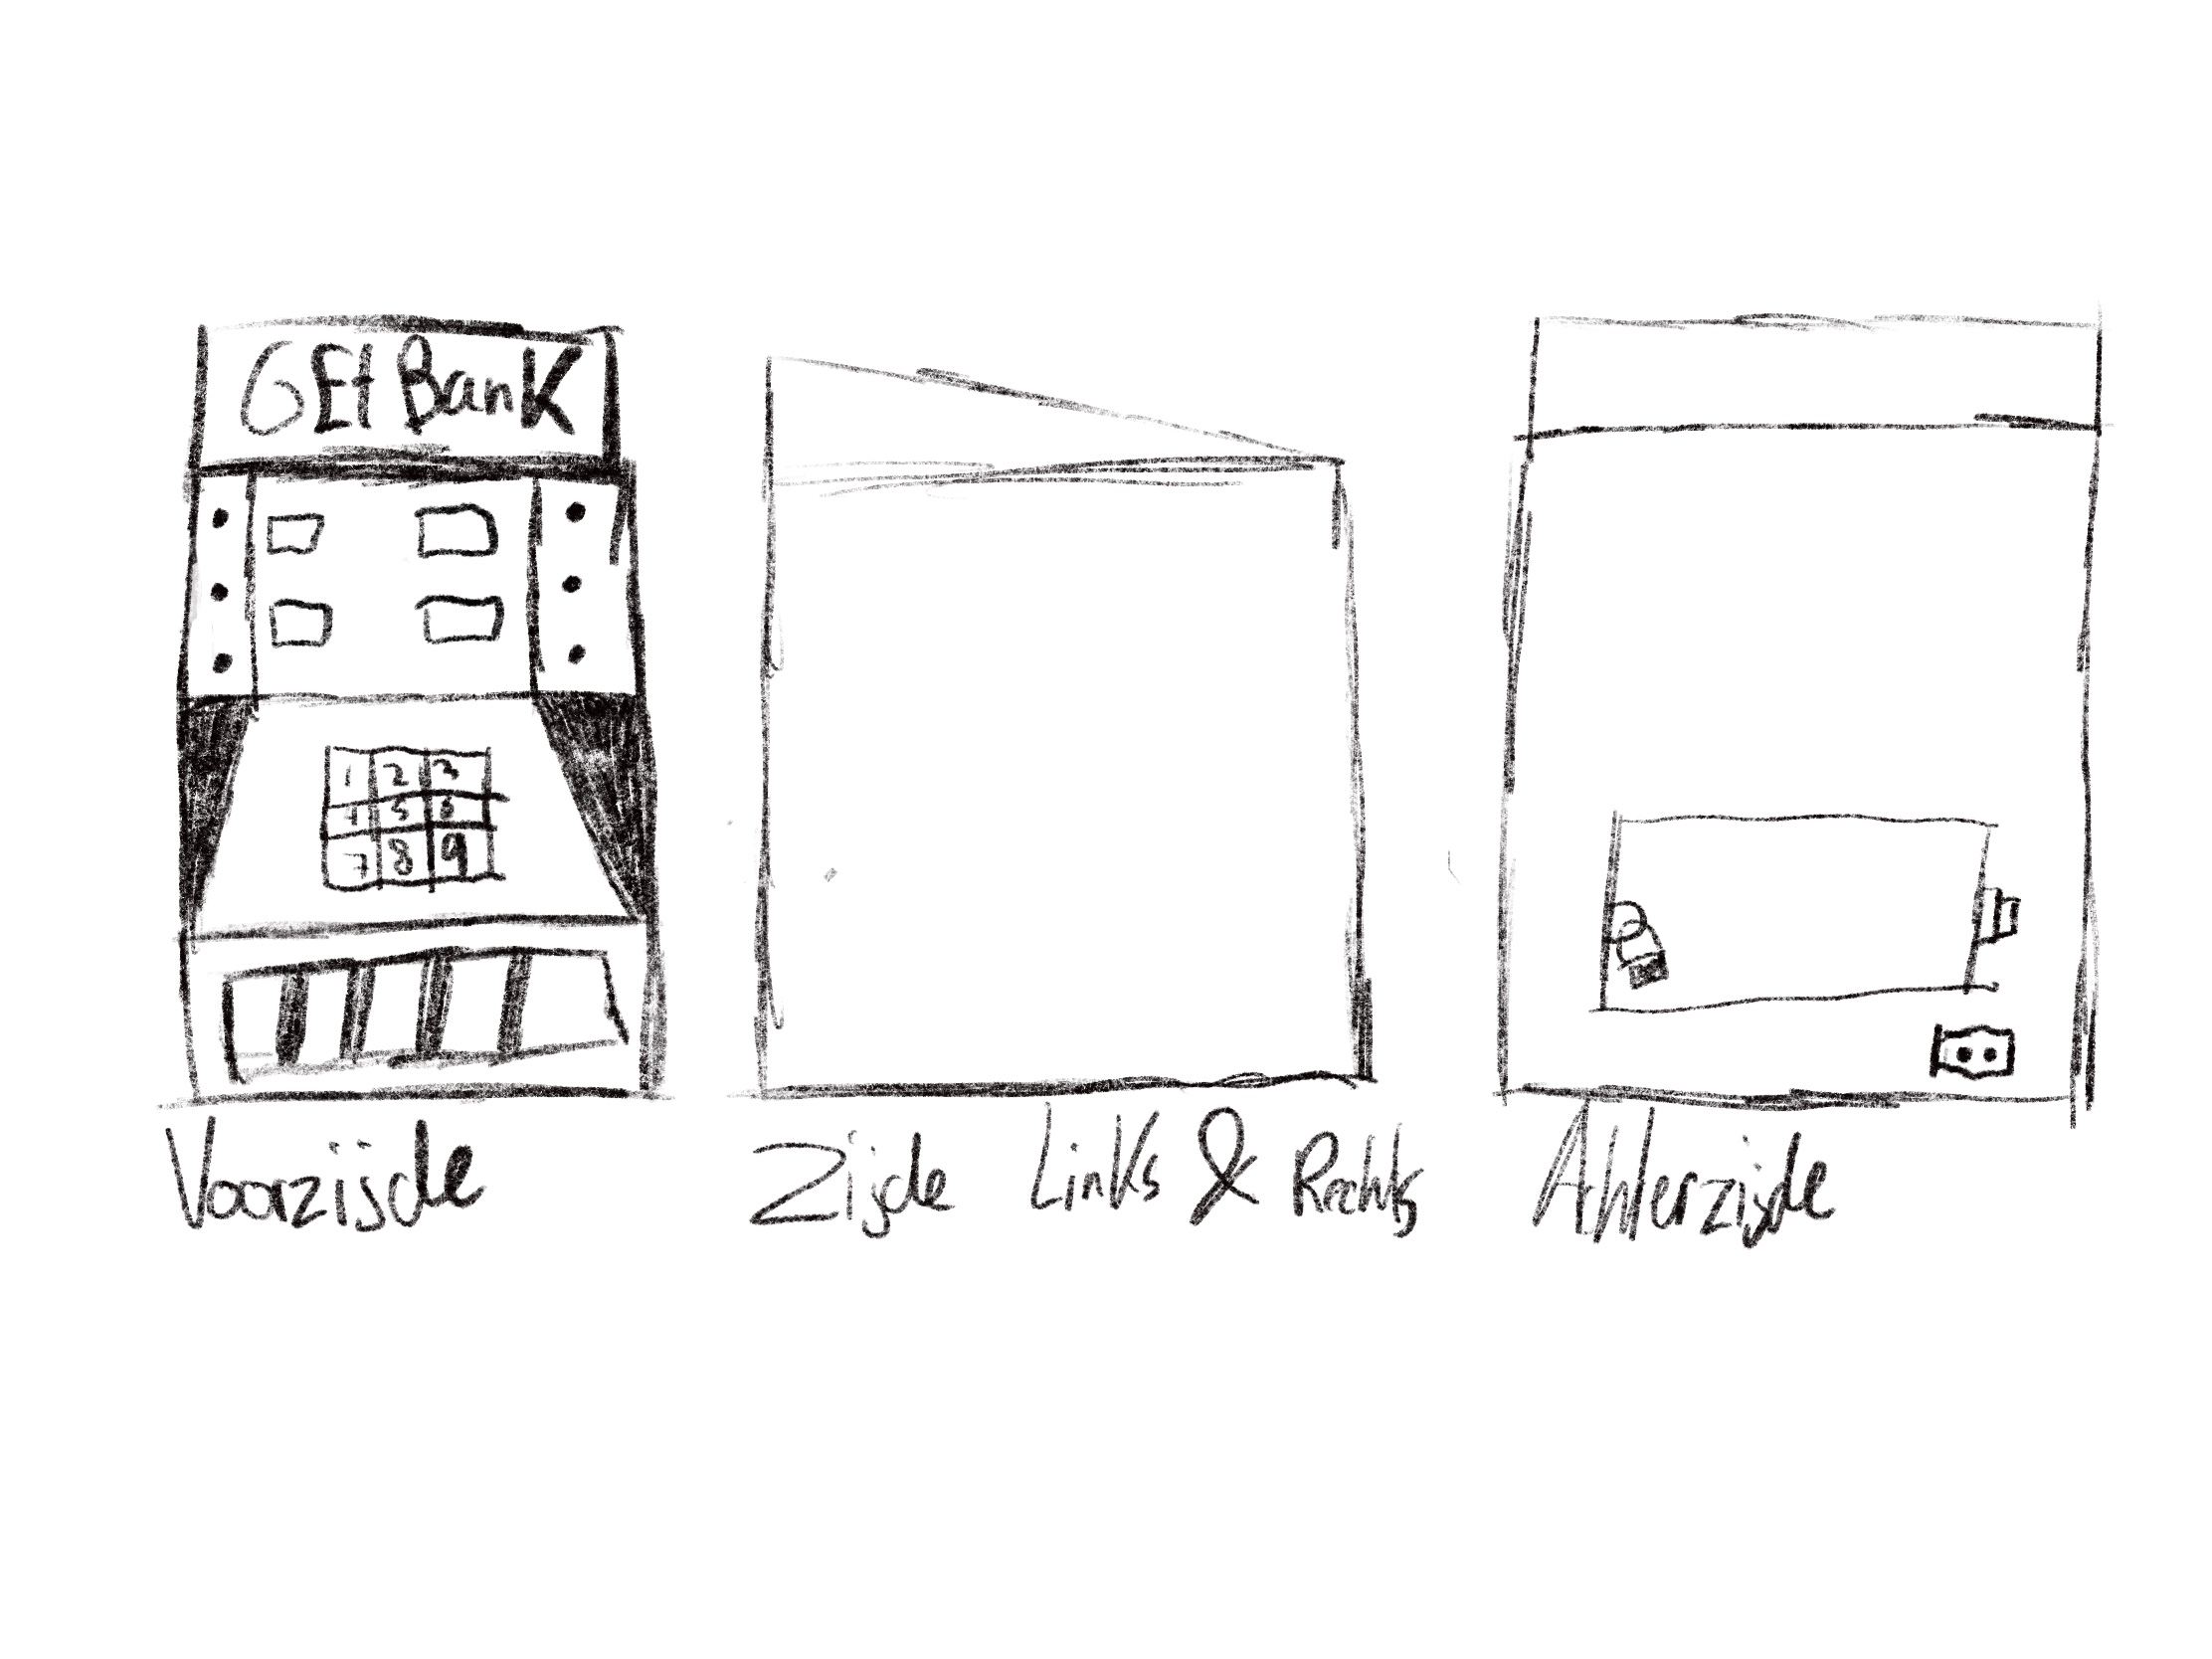 GEt Bank
1 2 3
4 5 6
7 8 9
Voorzijde
Zijde Links & Rechts
Achterzijde